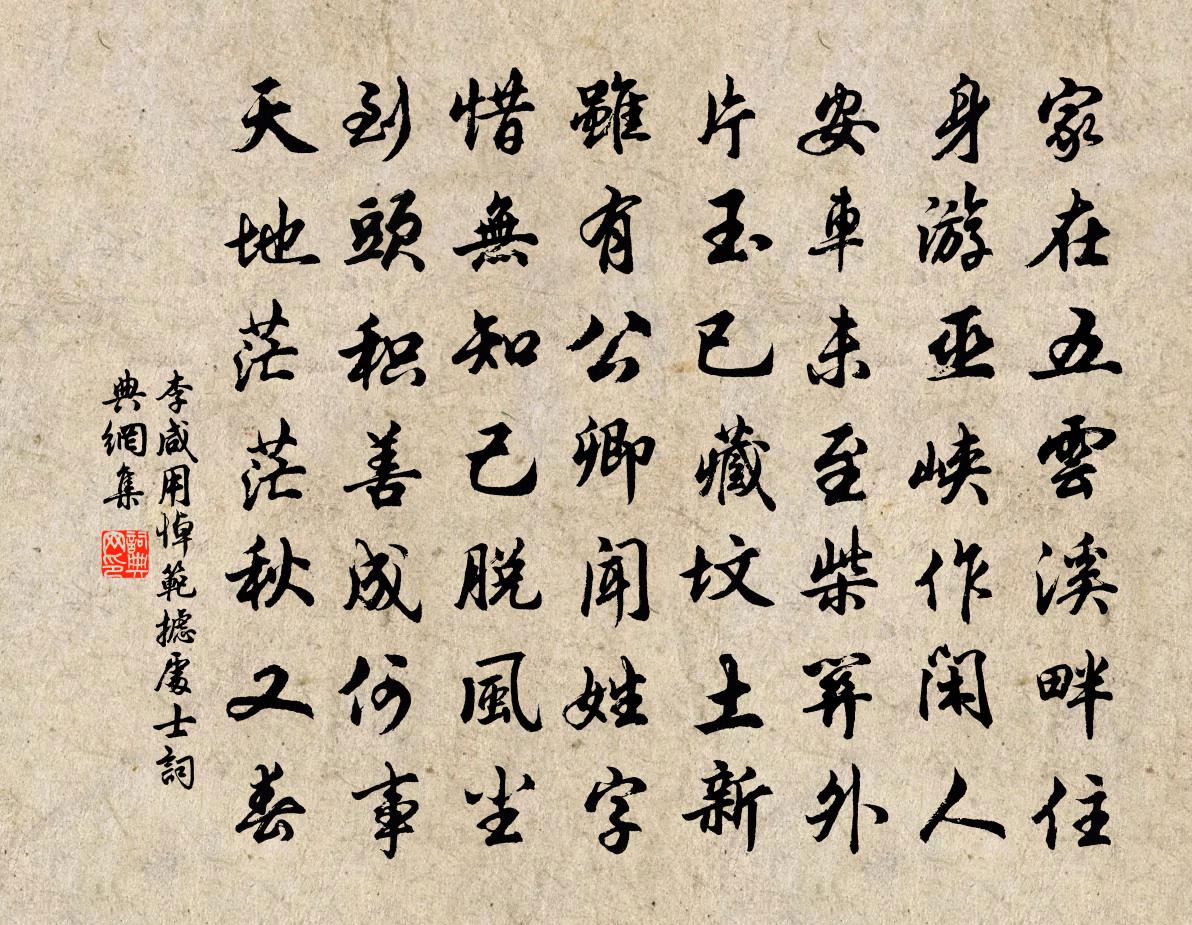 家在五雲溪畔住
身游巫峽作閑人
安車未至柴關外
片玉已藏墳土新
雖有公卿聞姓字
惜無知己脫風塵
到頭積善成何事
天地茫茫秋又春
李咸用悼範攄處士詞
典網集
詞典网印